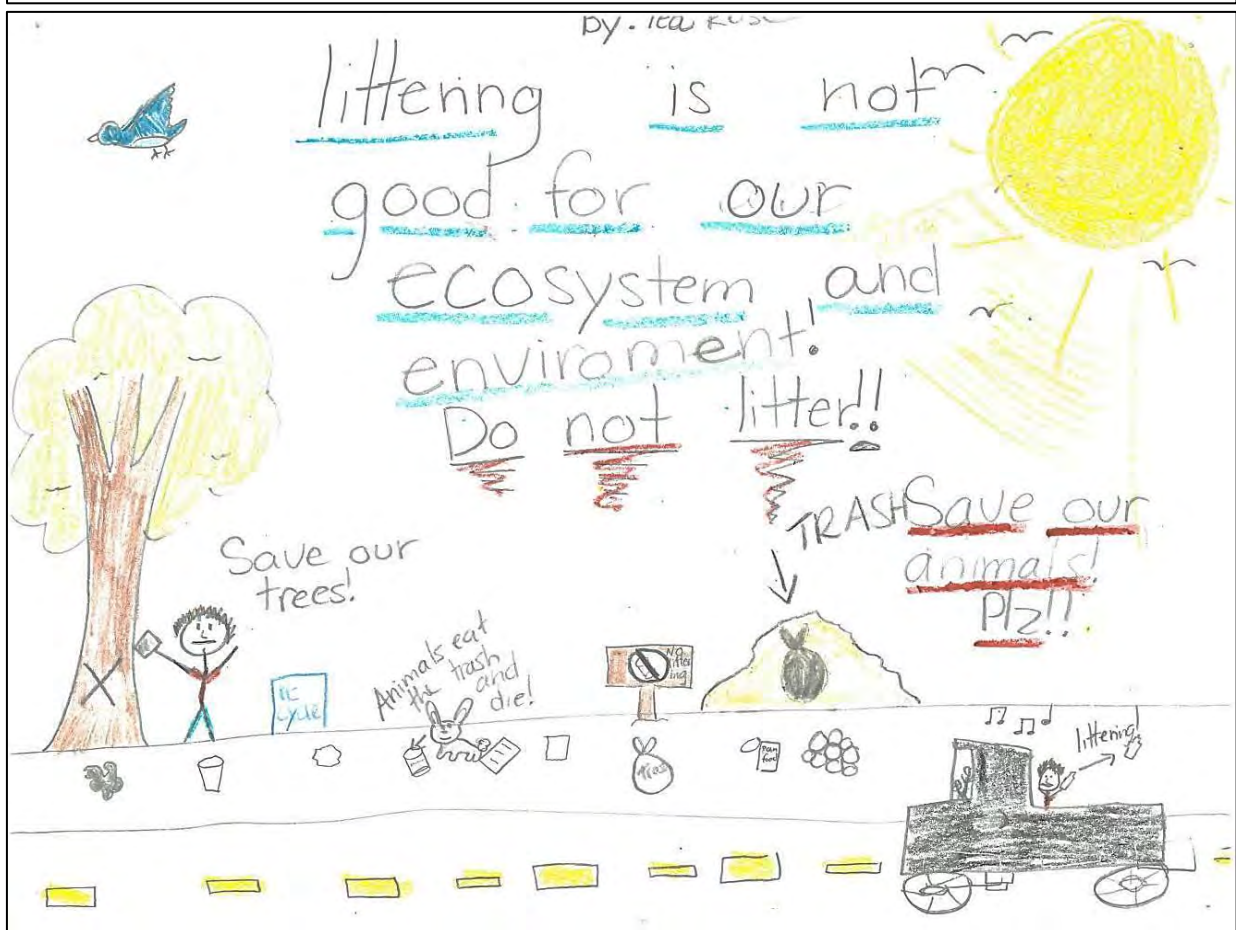 by.
littering is not
good for our
ecosystem and
enviroment!
Do not litter!!
TRASH
Save our
animals!
Plz!!
Save our
trees!
Animals eat
the trash
and
die!
NO
litter
ing
cycle
Tras
littering!